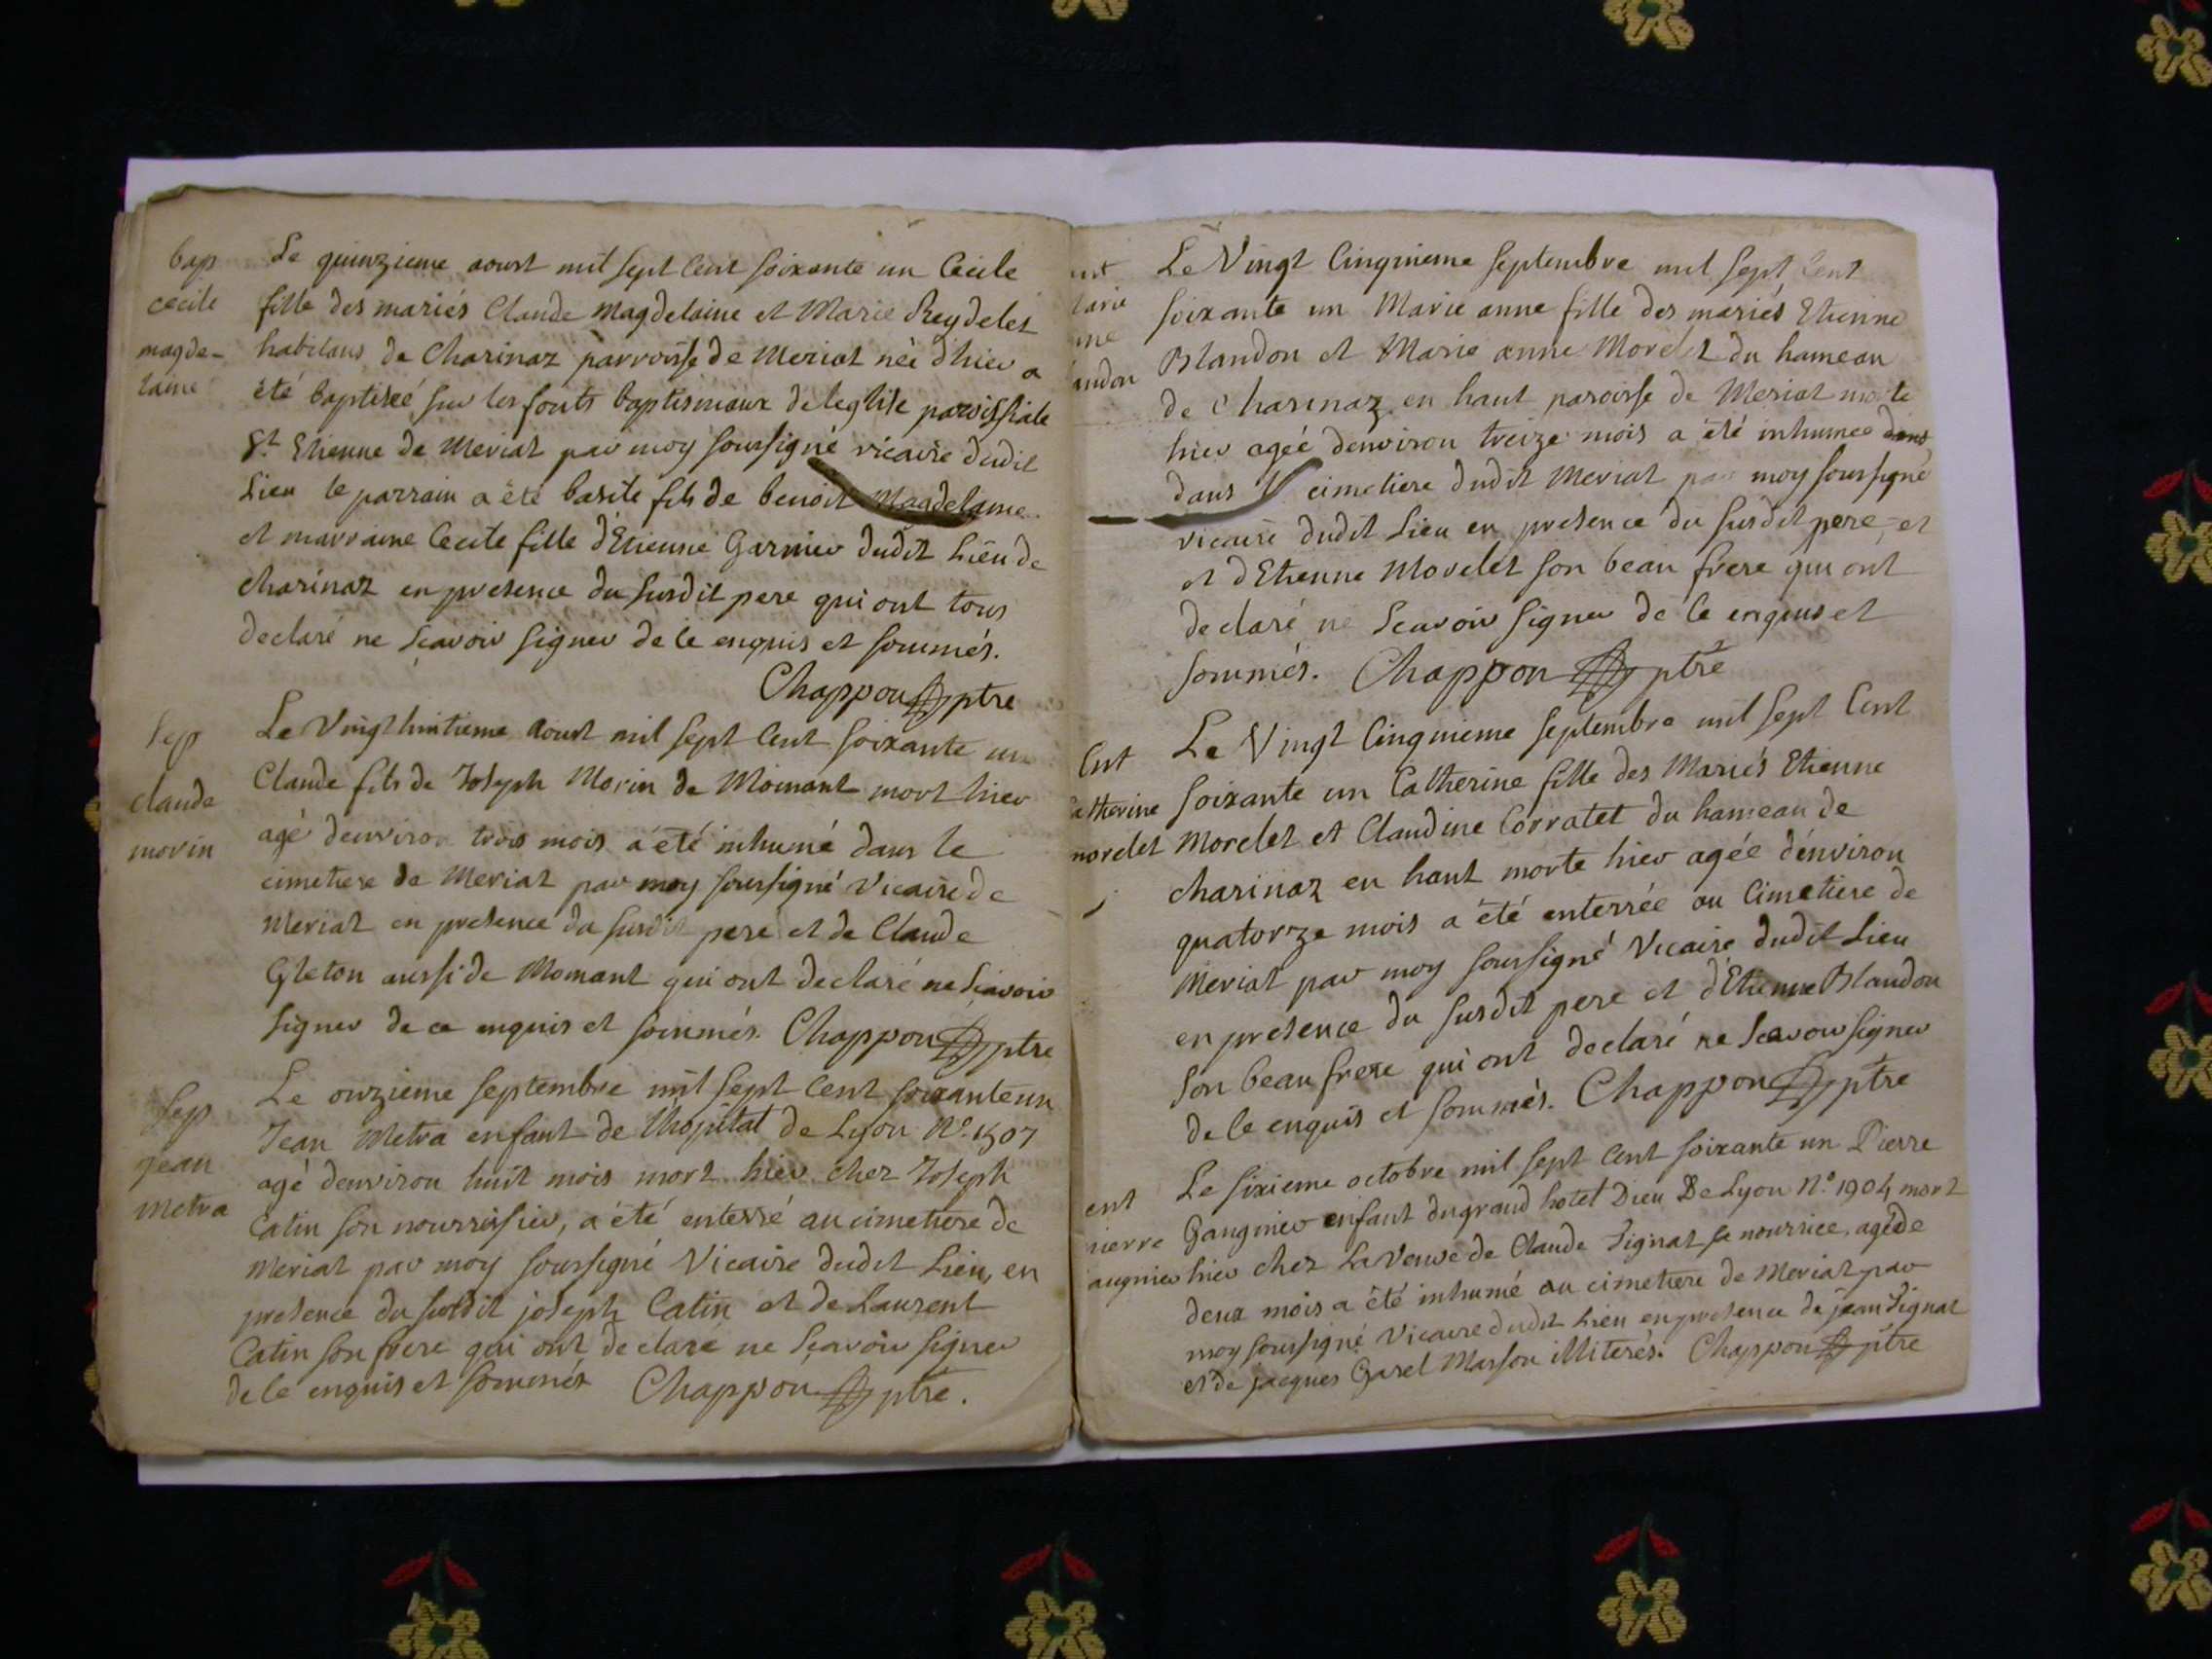 bap
cecile
magde-
laine
Le quinzieme aoust mil sept cent soixante un Cecile
fille des mariés Claude Magdelaine et Marie Reydelet
habitans de Charinaz parroisse de Meriat née d'hier a
été baptisée sur les fonts baptismaux de leglise paroissiale
St. Etienne de Meriat par moy soussigné vicaire dudit
Lieu le parrain a été basile fils de benoit Magdelaine
et marraine Cecile fille d'Etienne Garnier dudit Lieu de
charinaz en presence du susdit pere qui ont tous
declaré ne sçavoir signer de ce enquis et sommés.
Chappon ptre
Sep
claude
morin
Le Vingt huitieme aoust mil sept cent soixante un
Claude fils de Joseph Morin de Moinant mort hier
agé denviron trois mois a été inhumé dans le
cimetiere de Meriat par moy soussigné Vicaire de
Meriat en presence du susdit pere et de Claude
Gleton aussi de Momant qui ont declaré ne sçavoir
signer de ce enquis et sommés. Chappon ptre
Sep
jean
Metra
Le onzieme septembre mil sept cent soixante un
Jean Metra enfant de lhopital de Lyon No. 1507
agé denviron huit mois mort hier chez Joseph
Catin son nourrissier, a été enterré au cimetiere de
Meriat par moy soussigné Vicaire dudit Lieu, en
presence du susdit joseph Catin et de Laurent
Catin son frere qui ont declaré ne sçavoir signer
de ce enquis et sommés Chappon ptre.
andon
Le Vingt Cinquieme septembre mil sept cent
soixante un Marie anne fille des mariés Etienne
Blandon et Marie anne Morelet du hameau
de Charinaz en haut paroisse de Meriat morte
hier agée denviron treize mois a été inhumee dans
dans le cimetiere dudit Meriat par moy soussigné
vicaire dudit Lieu en presence du susdit pere, et
et dEtienne Morelet son beau frere qui ont
declaré ne Scavoir signer de ce enquis et
sommés. Chappon ptre
Ent
atherine
morelet
Le Vingt Cinquieme septembre mil sept Cent
soixante un Catherine fille des Mariés Etienne
Morelet et Claudine Corratet du hameau de
charinaz en haut morte hier agée d'environ
quatorze mois a été enterrée au Cimetiere de
Meriat par moy soussigné Vicaire dudit Lieu
en presence du susdit pere et d'Etienne Blandon
son beau frere qui ont declaré ne Scavoir signer
de ce enquis et sommés. Chappon ptre
ent
pierre
augnier
Le sixieme octobre mil sept cent soixante un Pierre
Gangnier enfant du grand hotel Dieu De Lyon No. 1904 mort
hier chez La Veuve de Claude Tignat sa nourrice, agé de
deux mois a été inhumé au cimetiere de Meriat par
moy soussigné Vicaire dudit Lieu en presence de jean Tignat
et de jacques Garel Masson illiterés. Chappon ptre